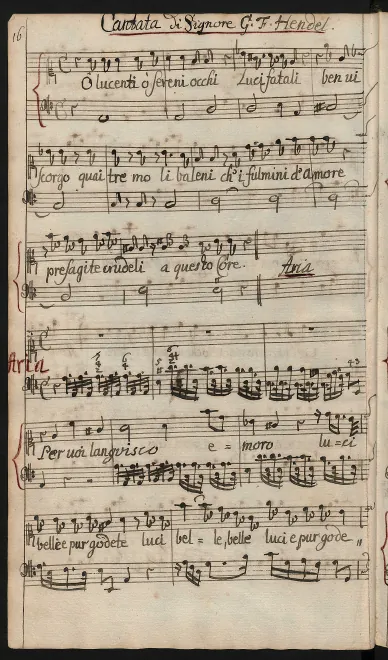 16
Cantata di Signore G. F. Hendel.
O lucenti ò sereni occhi Luci fatali ben vi
scorgo quai tre mo li baleni ch'i fulmini d'amore
presagite crudeli a questo Core. Aria
Aria
Per voi languisco e = moro lu = ci
belle e pur godete luci bel = le, belle luci e pur gode